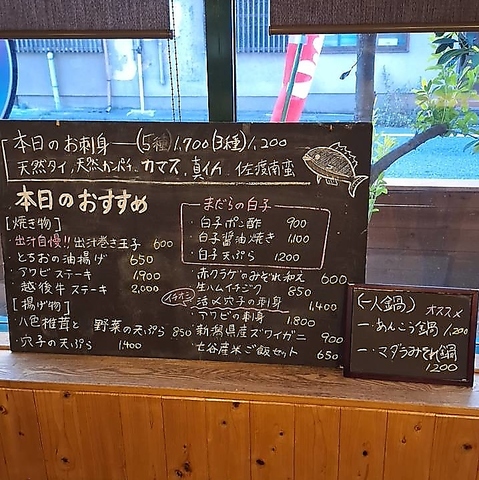 本日のお刺身―(5種)1,700(3種)1,200
天然タイ、天然カンパチ、カマス、真イカ、佐渡南蛮
本日のおすすめ
[焼き物]
・出汁自慢!!出汁巻き玉子 600
・とちおの油揚げ 650
・アワビステーキ 1,900
・越後牛ステーキ 2,000
[揚げ物]
・八色椎茸と野菜の天ぷら 850
・穴子の天ぷら 1,400
まだらの白子
・白子ポン酢 900
・白子醤油焼き 1,100
・白子天ぷら 1,200
・赤クラゲのみぞれ和え 600
・生ハムイチジク 850
イチオシ 活〆穴子の刺身 1,400
・アワビの刺身 1,800
・新潟県産ズワイガニ 900
・七谷産米ご飯セット 650
(一人鍋) オススメ
一・あんこう鍋 1,200
一・マダラみぞれ鍋
1,200